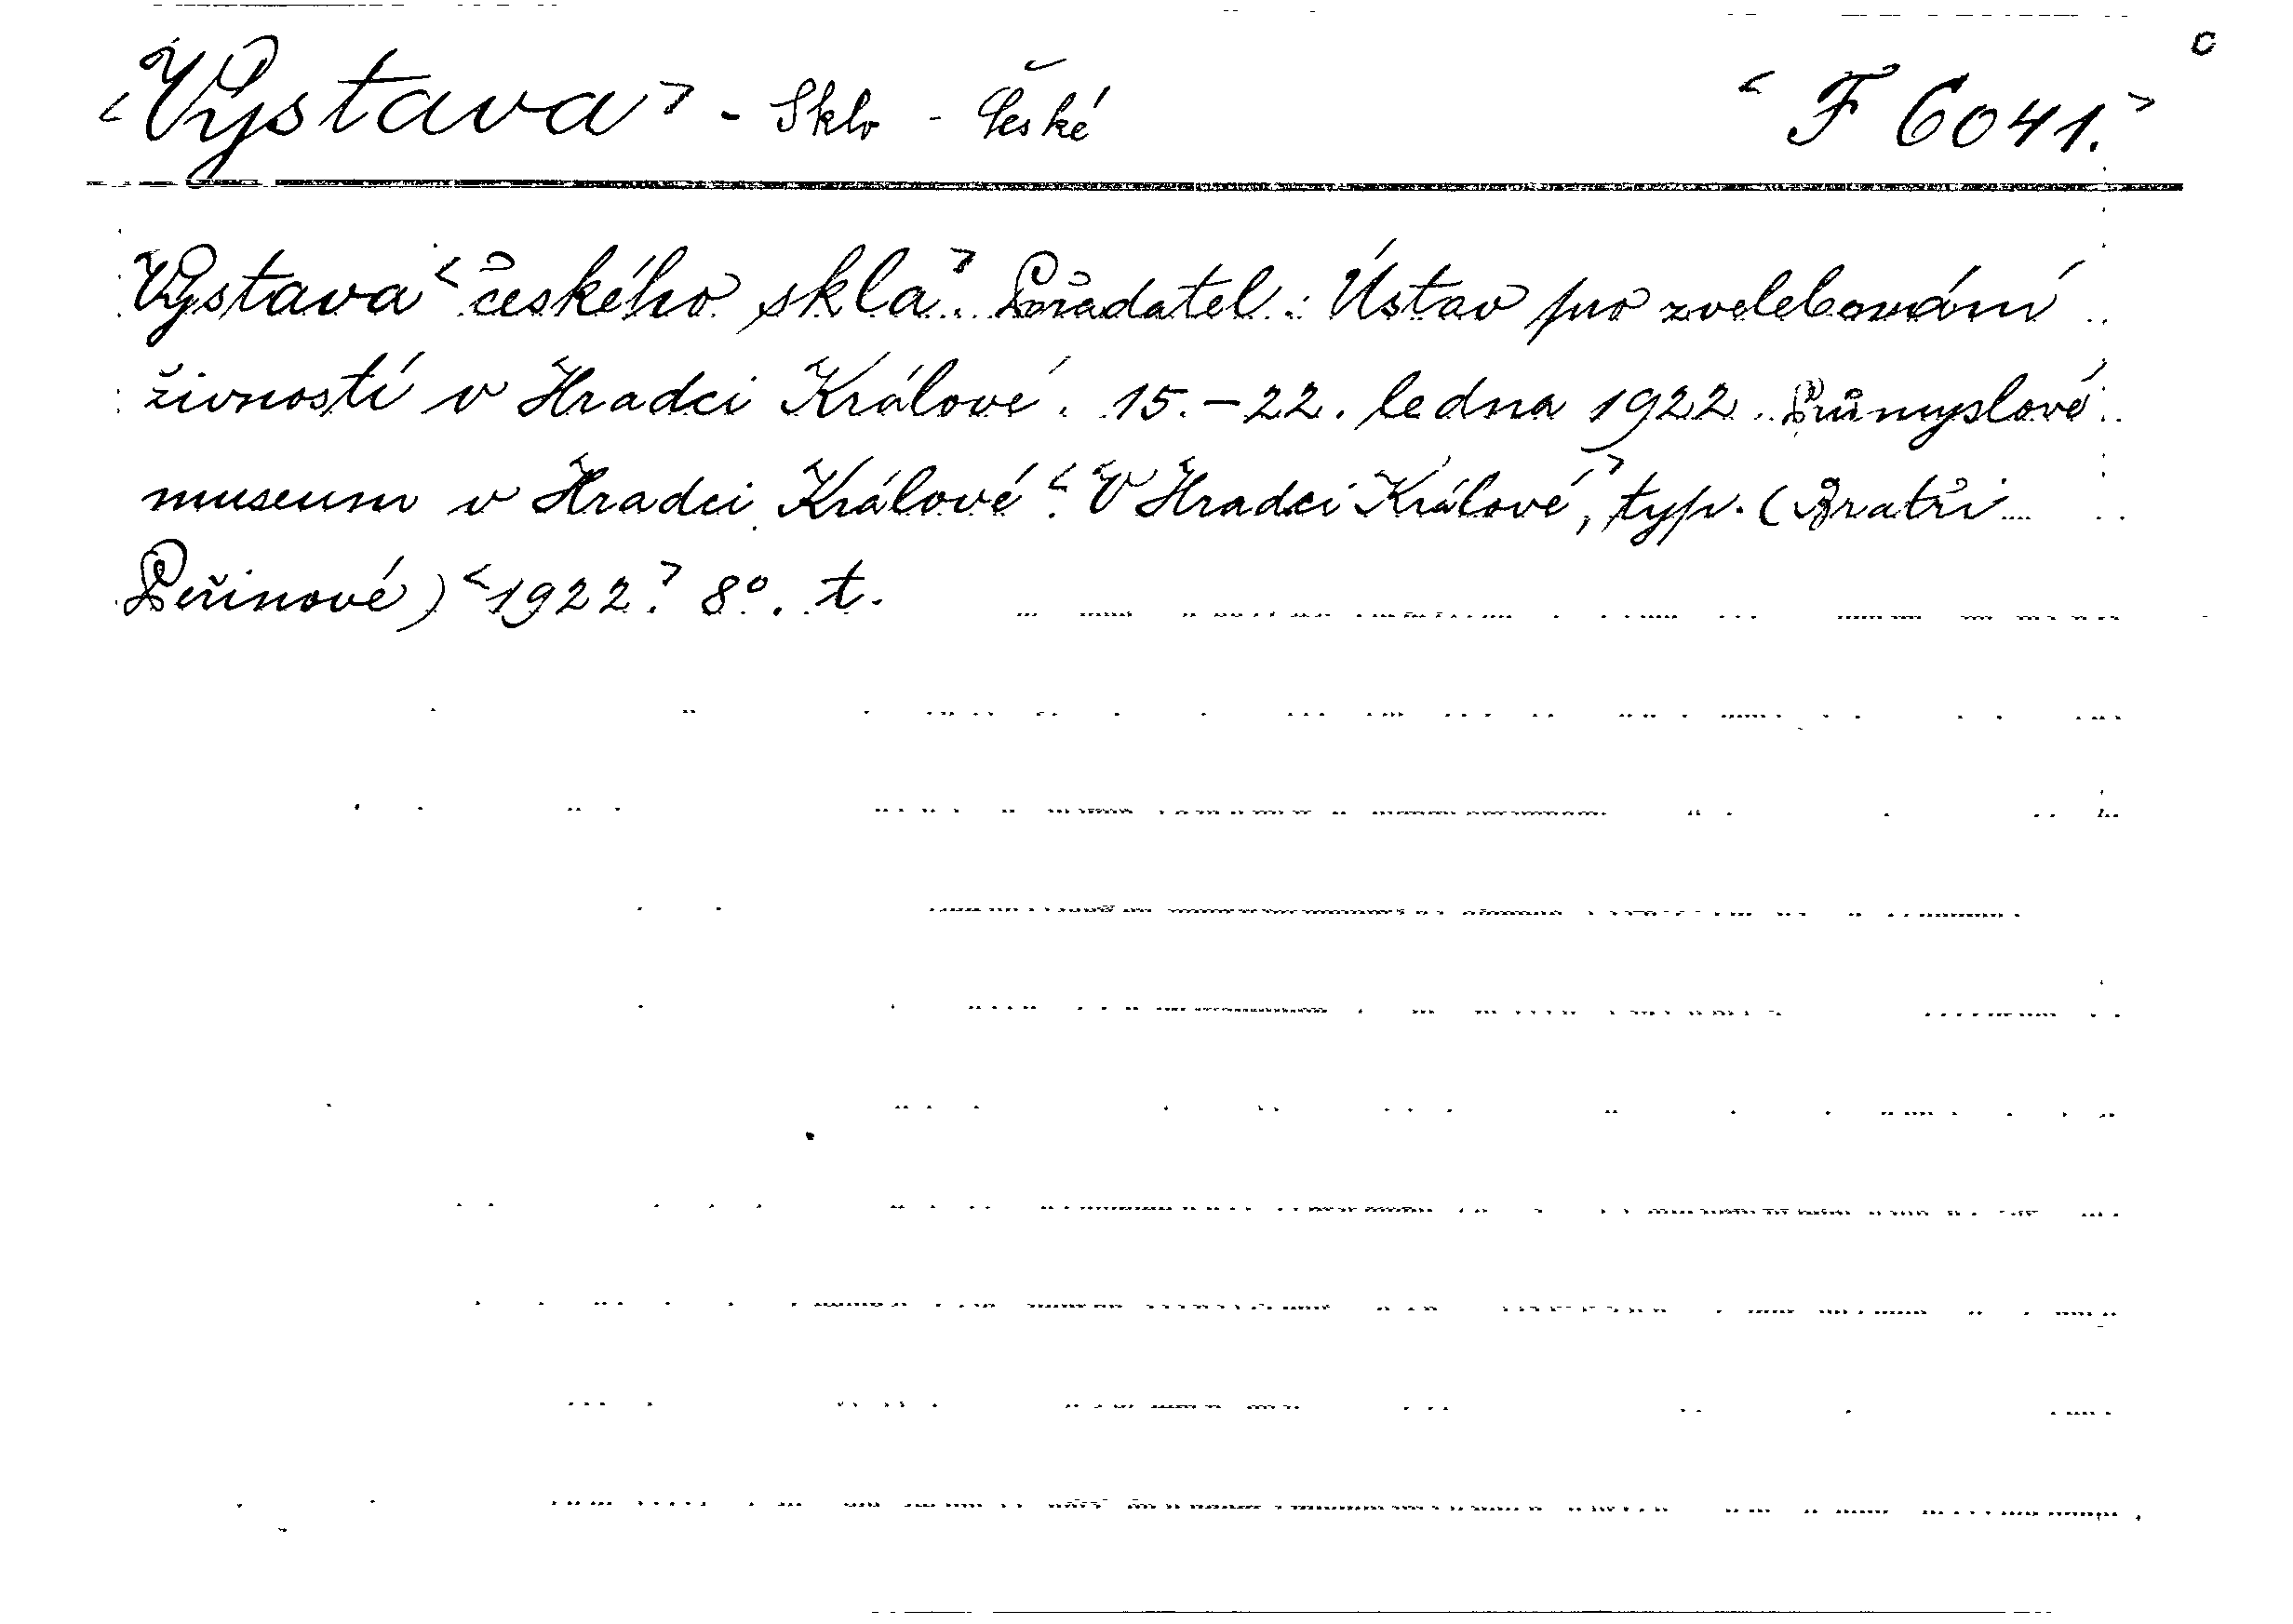 <Výstava> - Sklo - České <F 6041.>
Výstava <českého skla>. Pořadatel: Ústav pro zvelebování
živností v Hradci Králové. 15.-22. ledna 1922. Průmyslové
museum v Hradci Králové. <V Hradci Králové,> typ. (Bratři
Peřinové) <1922.> 8°. t.